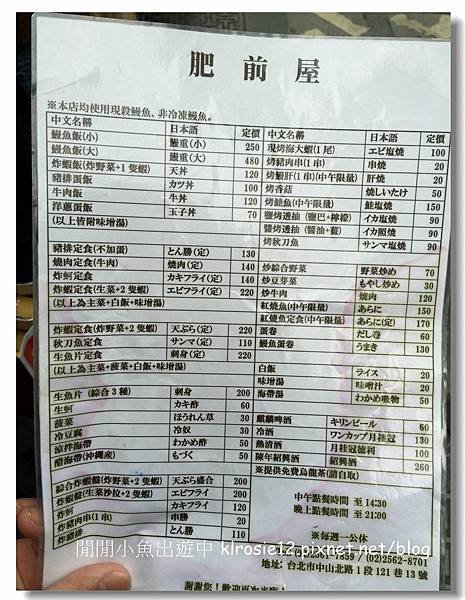 肥前屋
※本店均使用現殺鰻魚、非冷凍鰻魚。
中文名稱 日本語 定價
鰻魚飯(小) 鰻重(小) 250
鰻魚飯(大) 鰻重(大) 480
炸蝦飯(炸野菜+1隻蝦) 天丼 120
豬排蛋飯 カツ丼 100
牛肉飯 牛丼 120
洋蔥蛋飯 玉子丼 70
(以上皆附味增湯)
豬排定食(不加蛋) とん勝(定) 130
燒肉定食(牛肉) 燒肉(定) 140
炸蚵定食 カキフライ(定) 140
炸蝦定食(生菜+2隻蝦) エビフライ(定) 200
(以上為主菜+白飯+味增湯)
炸蝦定食(炸野菜+2隻蝦) 天ぷら(定) 220
秋刀魚定食 サンマ(定) 110
生魚片定食 刺身(定) 220
(以上為主菜+菠菜+白飯+味增湯)
生魚片(綜合3種) 刺身 200
生蚵 カキ酢 60
菠菜 ほうれん草 30
冷豆腐 冷奴 30
涼拌海帶 わかめ酢 50
醋海帶(沖繩産) もづく 50
綜合炸蝦盤(炸野菜+2隻蝦) 天ぷら盛合 200
炸蝦盤(生菜沙拉+2隻蝦) エビフライ 200
炸蚵 カキフライ 120
炸豬肉串(1串) 串勝 20
炸豬排 とん勝 110
中文名稱 日本語 定價
現烤海大蝦(1尾) エビ塩燒 100
烤豬肉串(1串) 串燒 20
烤鰻肝(1串)(中午限量) 肝燒 70
烤香菇 燒しいたけ 50
烤鮭魚(中午限量) 鮭塩燒 150
鹽烤透抽(鹽巴+檸檬) イカ塩燒 90
醬烤透抽(醬油+薑) イカ照燒 90
烤秋刀魚 サンマ塩燒 90
炒綜合野菜 野菜炒め 70
炒豆芽菜 もやし炒め 30
炒牛肉 燒肉 120
紅燒魚(中午限量) あらに 150
紅燒魚定食(中午限量) あらに(定) 170
蛋卷 だし卷 60
鰻魚蛋卷 うまき 130
白飯 ライス 20
味增湯 味噌汁 20
海帶湯 わかめ吸物 50
麒麟啤酒 キリンビール 60
冷酒 ワンカップ月桂冠 130
熱清酒 月桂冠德利 100
陳年紹興酒 紹興酒 260
※提供免費烏龍茶(請自取)
中午點餐時間 至 14:30
晚上點餐時間 至 21:00
※每週一公休
7859 / (02)2562-8701
地址: 台北市中山北路1段121巷13號
謝謝您!歡迎再次光臨!
閒閒小魚出遊中 klrosie12.pixnet.net/blog